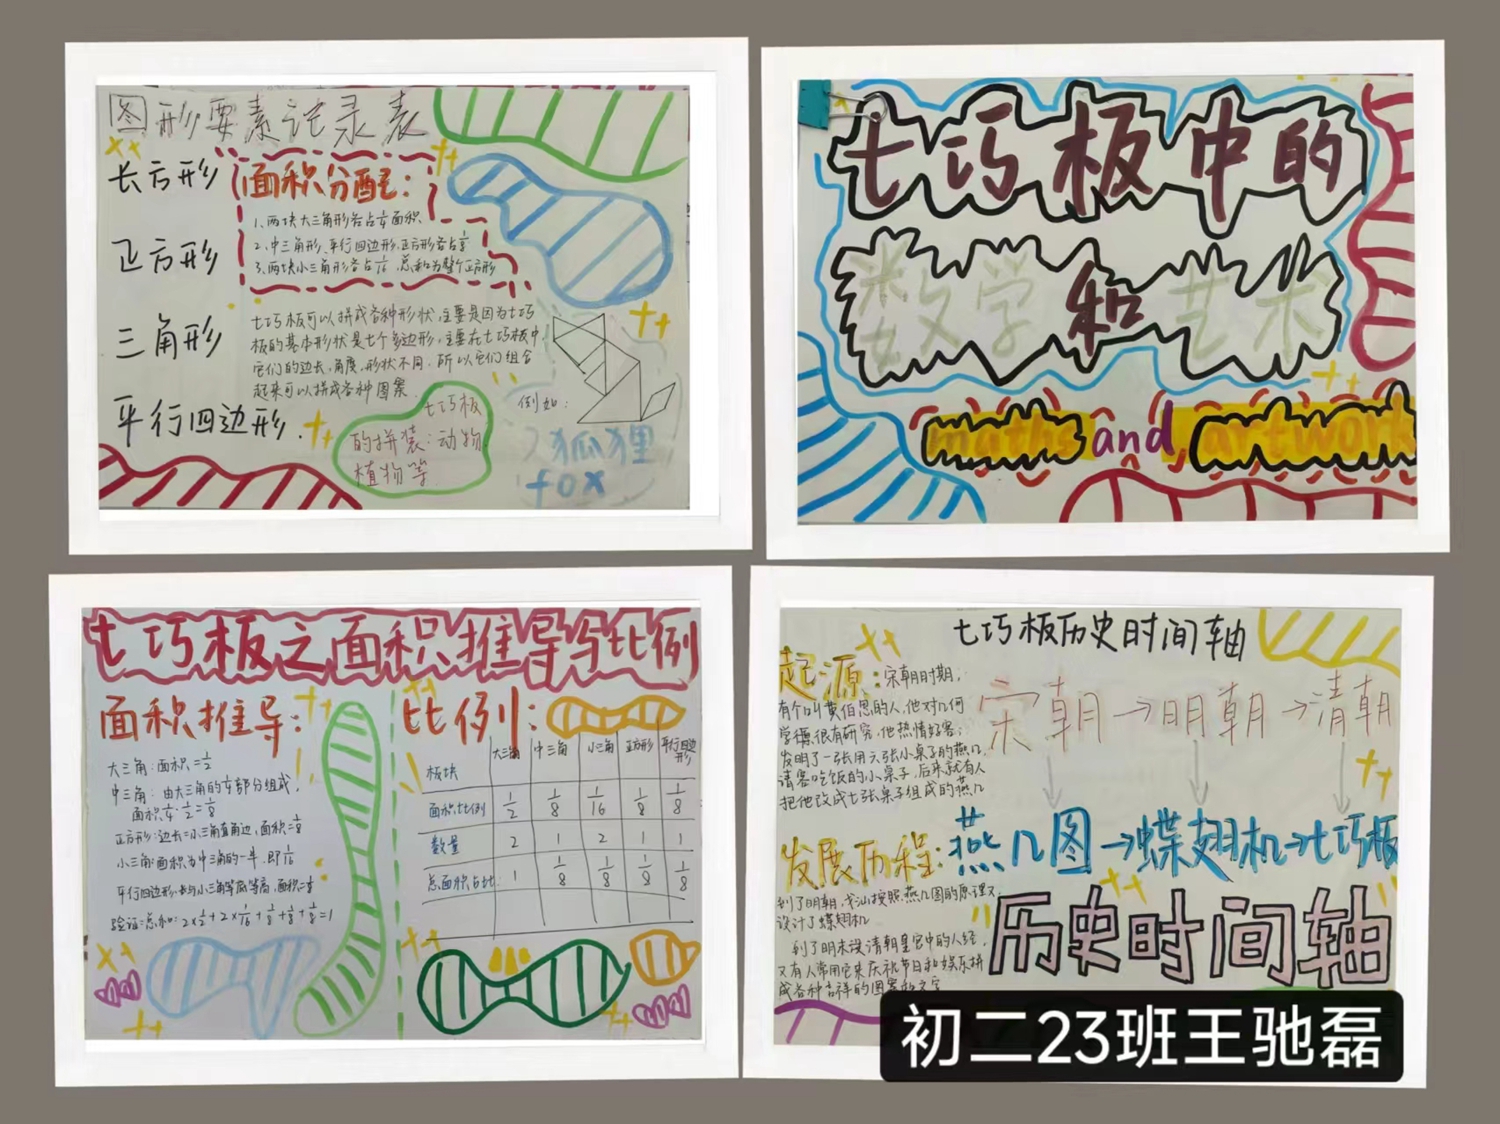 图形要素记录表
长方形
正方形
三角形
平行四边形.
面积分配:
1.两块大三角形各占¼面积.
2.中三角形、平行四边形、正方形各占⅛
3.两块小三角形各占1/16 总和为整个正方形
七巧板可以拼成各种形状,主要是因为七巧
板的基本形状是七个多边形,主要在七巧板中
它们的边长,角度,形状不同.所以它们组合
起来可以拼成各种图案.
七巧板
的拼装:动物
植物等
例如:
狐狸
fox
七巧板中的
数学和艺术
maths and artwork
七巧板之面积推导与比例
面积推导:
大三角:面积=½
中三角:由大三角的¼部分组成,
面积¼·½=⅛
正方形:边长=小三角直角边,面积=⅛
小三角:面积为中三角的一半.即1/16
平行四边形:长与小三角等底等高,面积=⅛
验证:总和:2×½+2×1/16+⅛+⅛+⅛=1
比例:
板块 大三角 中三角 小三角 正方形 平行四边形
面积比例 ½ ⅛ 1/16 ⅛ ⅛
数量 2 1 2 1 1
总面积占比: 1 ⅛ ⅛ ⅛ ⅛
七巧板历史时间轴
起源:宋朝时期,
有个叫黄伯思的人,他对几何
学很有研究,他热情好客,
发明了一张用六张小桌子的燕几
请客吃饭的小桌子,后来就有人
把他改成七张桌子组成的燕几
宋朝→明朝→清朝
燕几图→蝶翅机→七巧板
发展历程:
到了明朝,戈汕按照燕几图的原理又
设计了蝶翅机
到了明末没清朝皇宫中的人经,
又有人常用它来庆祝节日和娱乐拼
成各种吉祥的图案和文字
历史时间轴
初二23班王驰磊